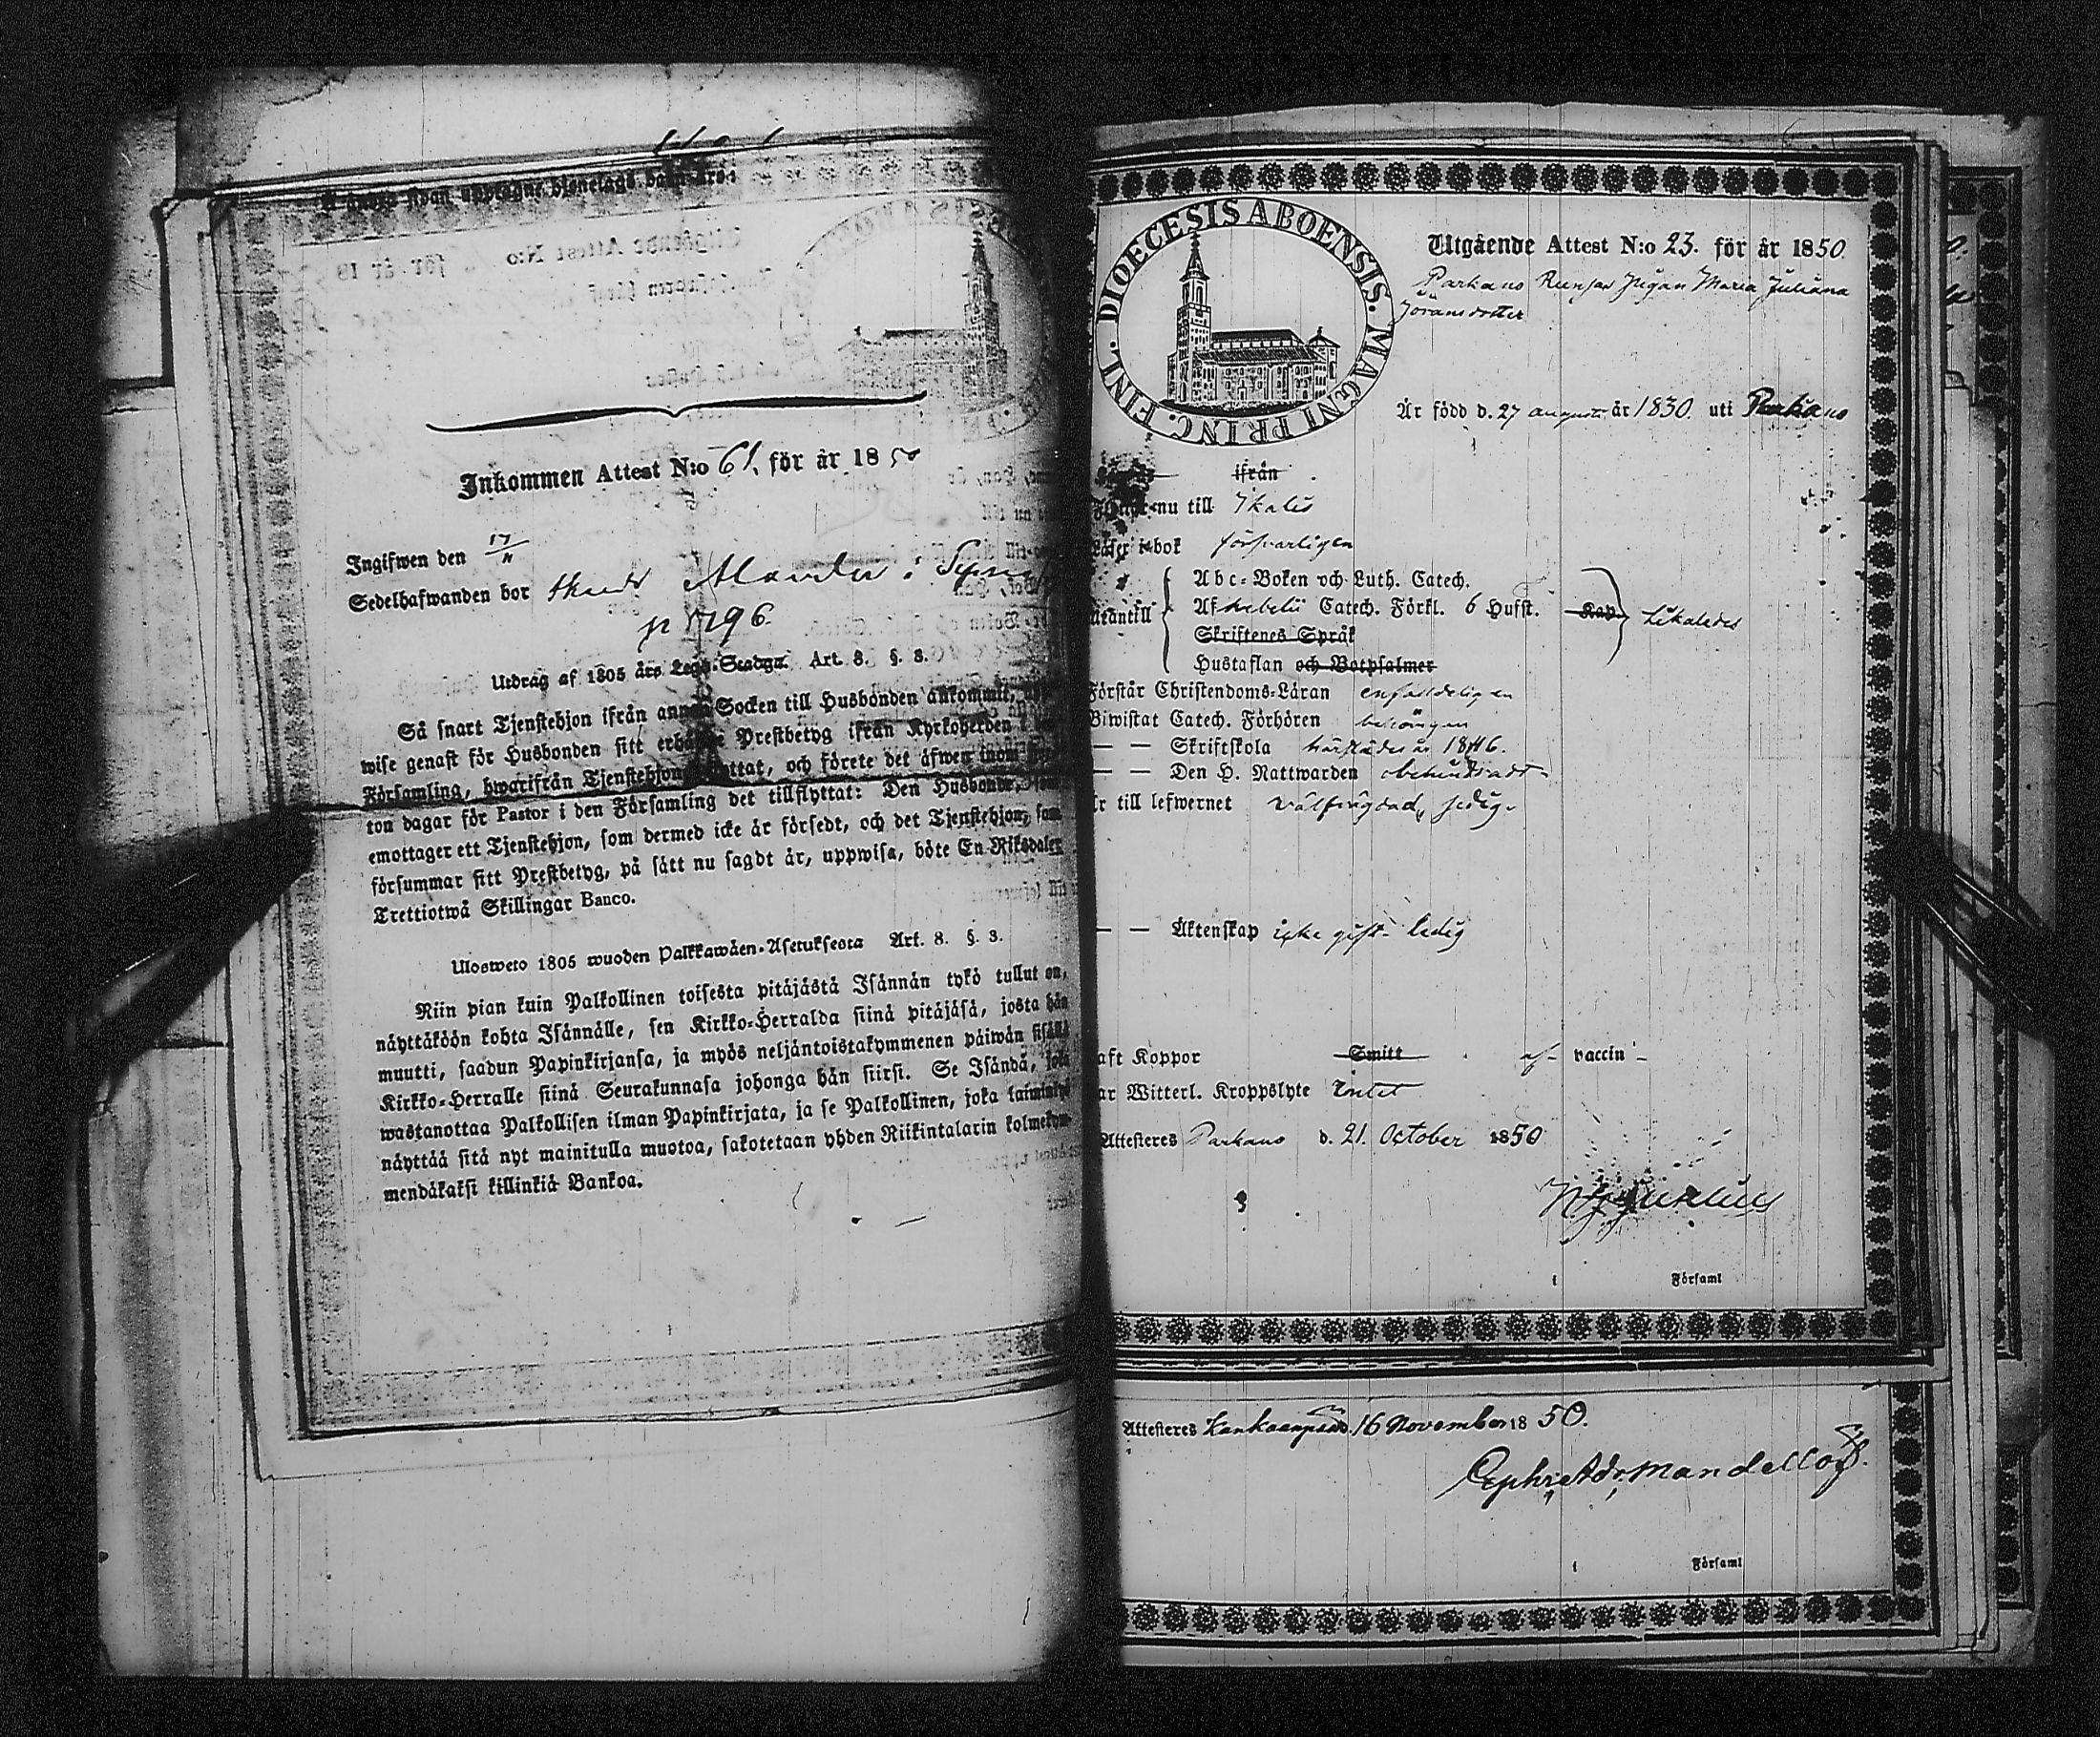 Inkommen Attest N:o 61. för år 1850
Ingifwen den 17/11
Sedelhafwanden bor hos i
p 796.
Utdrag af 1805 års Lego-Stadga. Art. 8. §. 3.
Så snart Tjenstehjon ifrån annan Socken till Husbonden ankommit,
wise genast för Husbonden sitt Prestbetyg ifrån Kyrkoherden i
Församling, hwarifrån Tjenstehjonet flyttat, och förete det äfwen inom
ton dagar för Pastor i den Församling det tillflyttat: Den Husbonde, som
emottager ett Tjenstehjon, som dermed icke är försedt, och det Tjenstehjon, som
försummar sitt Prestbetyg, på sätt nu sagdt är, uppwisa, böte En Riksdaler
Trettiotwå Skillingar Banco.
Ulosweto 1805 wuoden Palkkawäen-Asetuksesta Art. 8. §. 3.
Niin pian kuin Palkollinen toisesta pitäjästä Isännän tykö tullut on,
näyttäköön kohta Isännälle, sen Kirkko-Herralda siinä pitäjäsä, josta hän
muutti, saadun Papinkirjansa, ja myös neljäntoistakymmenen päiwän sisällä
Kirkko-Herralle siinä Seurakunnasa johonga hän siirsi. Se Isändä, joka
wastanottaa Palkollisen ilman Papinkirjata, ja se Palkollinen, joka laiminlyö
näyttää sitä nyt mainitulla muotoa, sakotetaan yhden Riikintalarin kolmekym-
mendäkaksi killinkiä Bankoa.
DIOECESIS ABOENSIS. MAGNI PRINC. FINL.
Utgående Attest N:o 23. för år 1850.
Parkano Pigan Maria Juliana
Göransdotter
Är född d. 27 augusti år 1830. uti Parkano
ifrån
nu till Ikalis
Läser i bok försvarligen
Utantill
Abc-Boken och Luth. Catech.
Af Catech. Förkl. 6 Hufst. Kap. likaledes
Skriftenes Språk
Hustaflan och Botpsalmer
Förstår Christendoms-Läran enfaldeligen
Biwistat Catech. Förhören behörigen
— — Skriftskola härstädes år 1846.
— — Den H. Nattwarden obehindradt
Är till lefwernet wälfrägdad, sedig.
— — Äktenskap icke gift - ledig
Haft Koppor Smitt af vaccin
Har Witterl. Kroppslyte Intet
Attesteres Parkano d. 21. October 1850
Församl
Attesteres Kankaanpää d. 16 November 1850.
Ephr. Adr. Mandellöf.
Församl